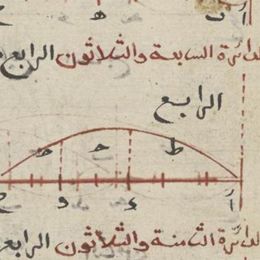 الدائرة السابعة والثلاثون الرابع
الرابع
ط ح
ا ع و
الدائرة الثامنة والثلاثون الرابع